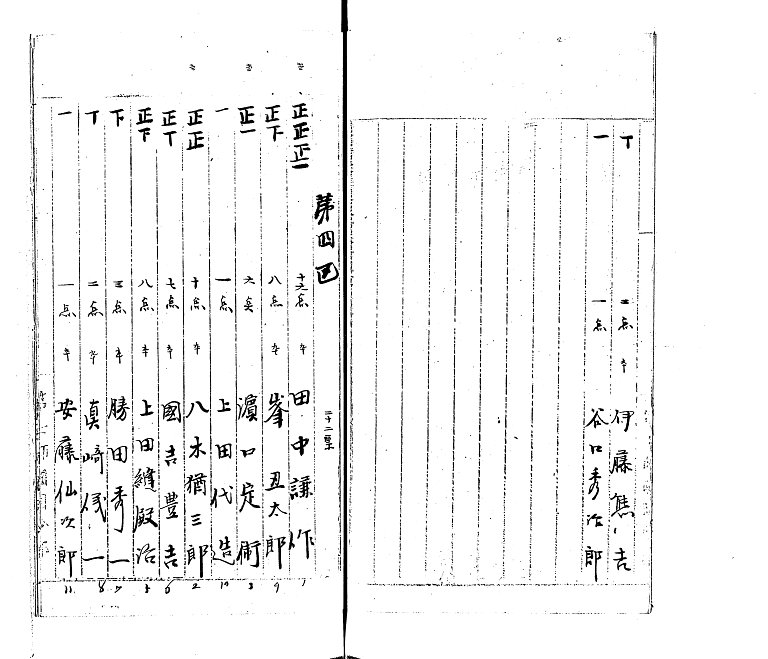 丅 二点 伊藤焦吉
一 一点 谷口秀治郎
第四回
正正正一 十六点 田中謙作
正下 八点 峯丑太郎
正一 六点 濱口定術
一 一点 上田代造
正正 十点 八木猶三郎
正丅 七点 國吉豊吉
正下 八点 上田縫殿治
下 三点 勝田秀一
丅 二点 真崎儀一
一 一点 安藤仙次郎